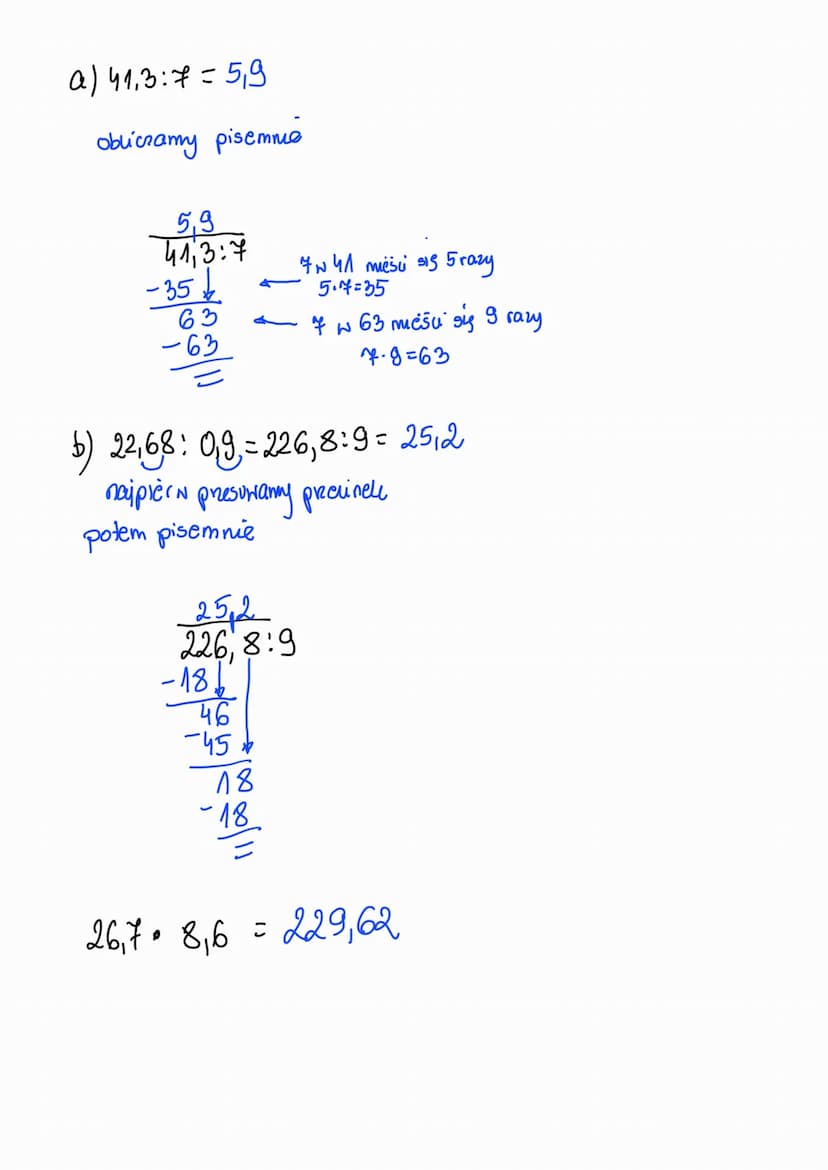 a) 41,3:7 = 5,9
obliczamy pisemnie
5,9
41,3:7
7 w 41 mieści się 5 razy
-35
5·7=35
63
7 w 63 mieści się 9 razy
-63
7·9=63
b) 22,68: 0,9 = 226,8:9 = 25,2
najpierw przesuwamy przecinek
potem pisemnie
25,2
226,8:9
-18
46
-45
18
-18
26,7 · 8,6 = 229,62